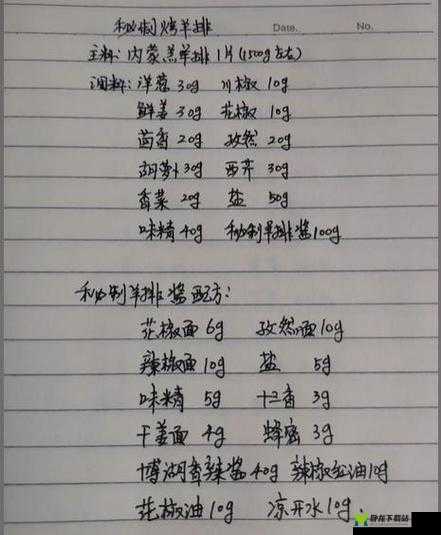 秘制烤羊排 Date. No.
主料: 内蒙羔羊排1片(1500g左右)
调料: 洋葱30g 川椒10g
鲜姜30g 花椒10g
茴香20g 孜然20g
胡萝卜30g 西芹30g
香菜20g 盐50g
味精40g 秘制羊排酱100g
秘制羊排酱配方:
花椒面6g 孜然面10g
辣椒面10g 盐5g
味精5g 十三香3g
干姜面4g 蜂蜜3g
博湖香辣酱40g 辣椒红油10g
花椒油10g 凉开水10g.
卧龙下载站